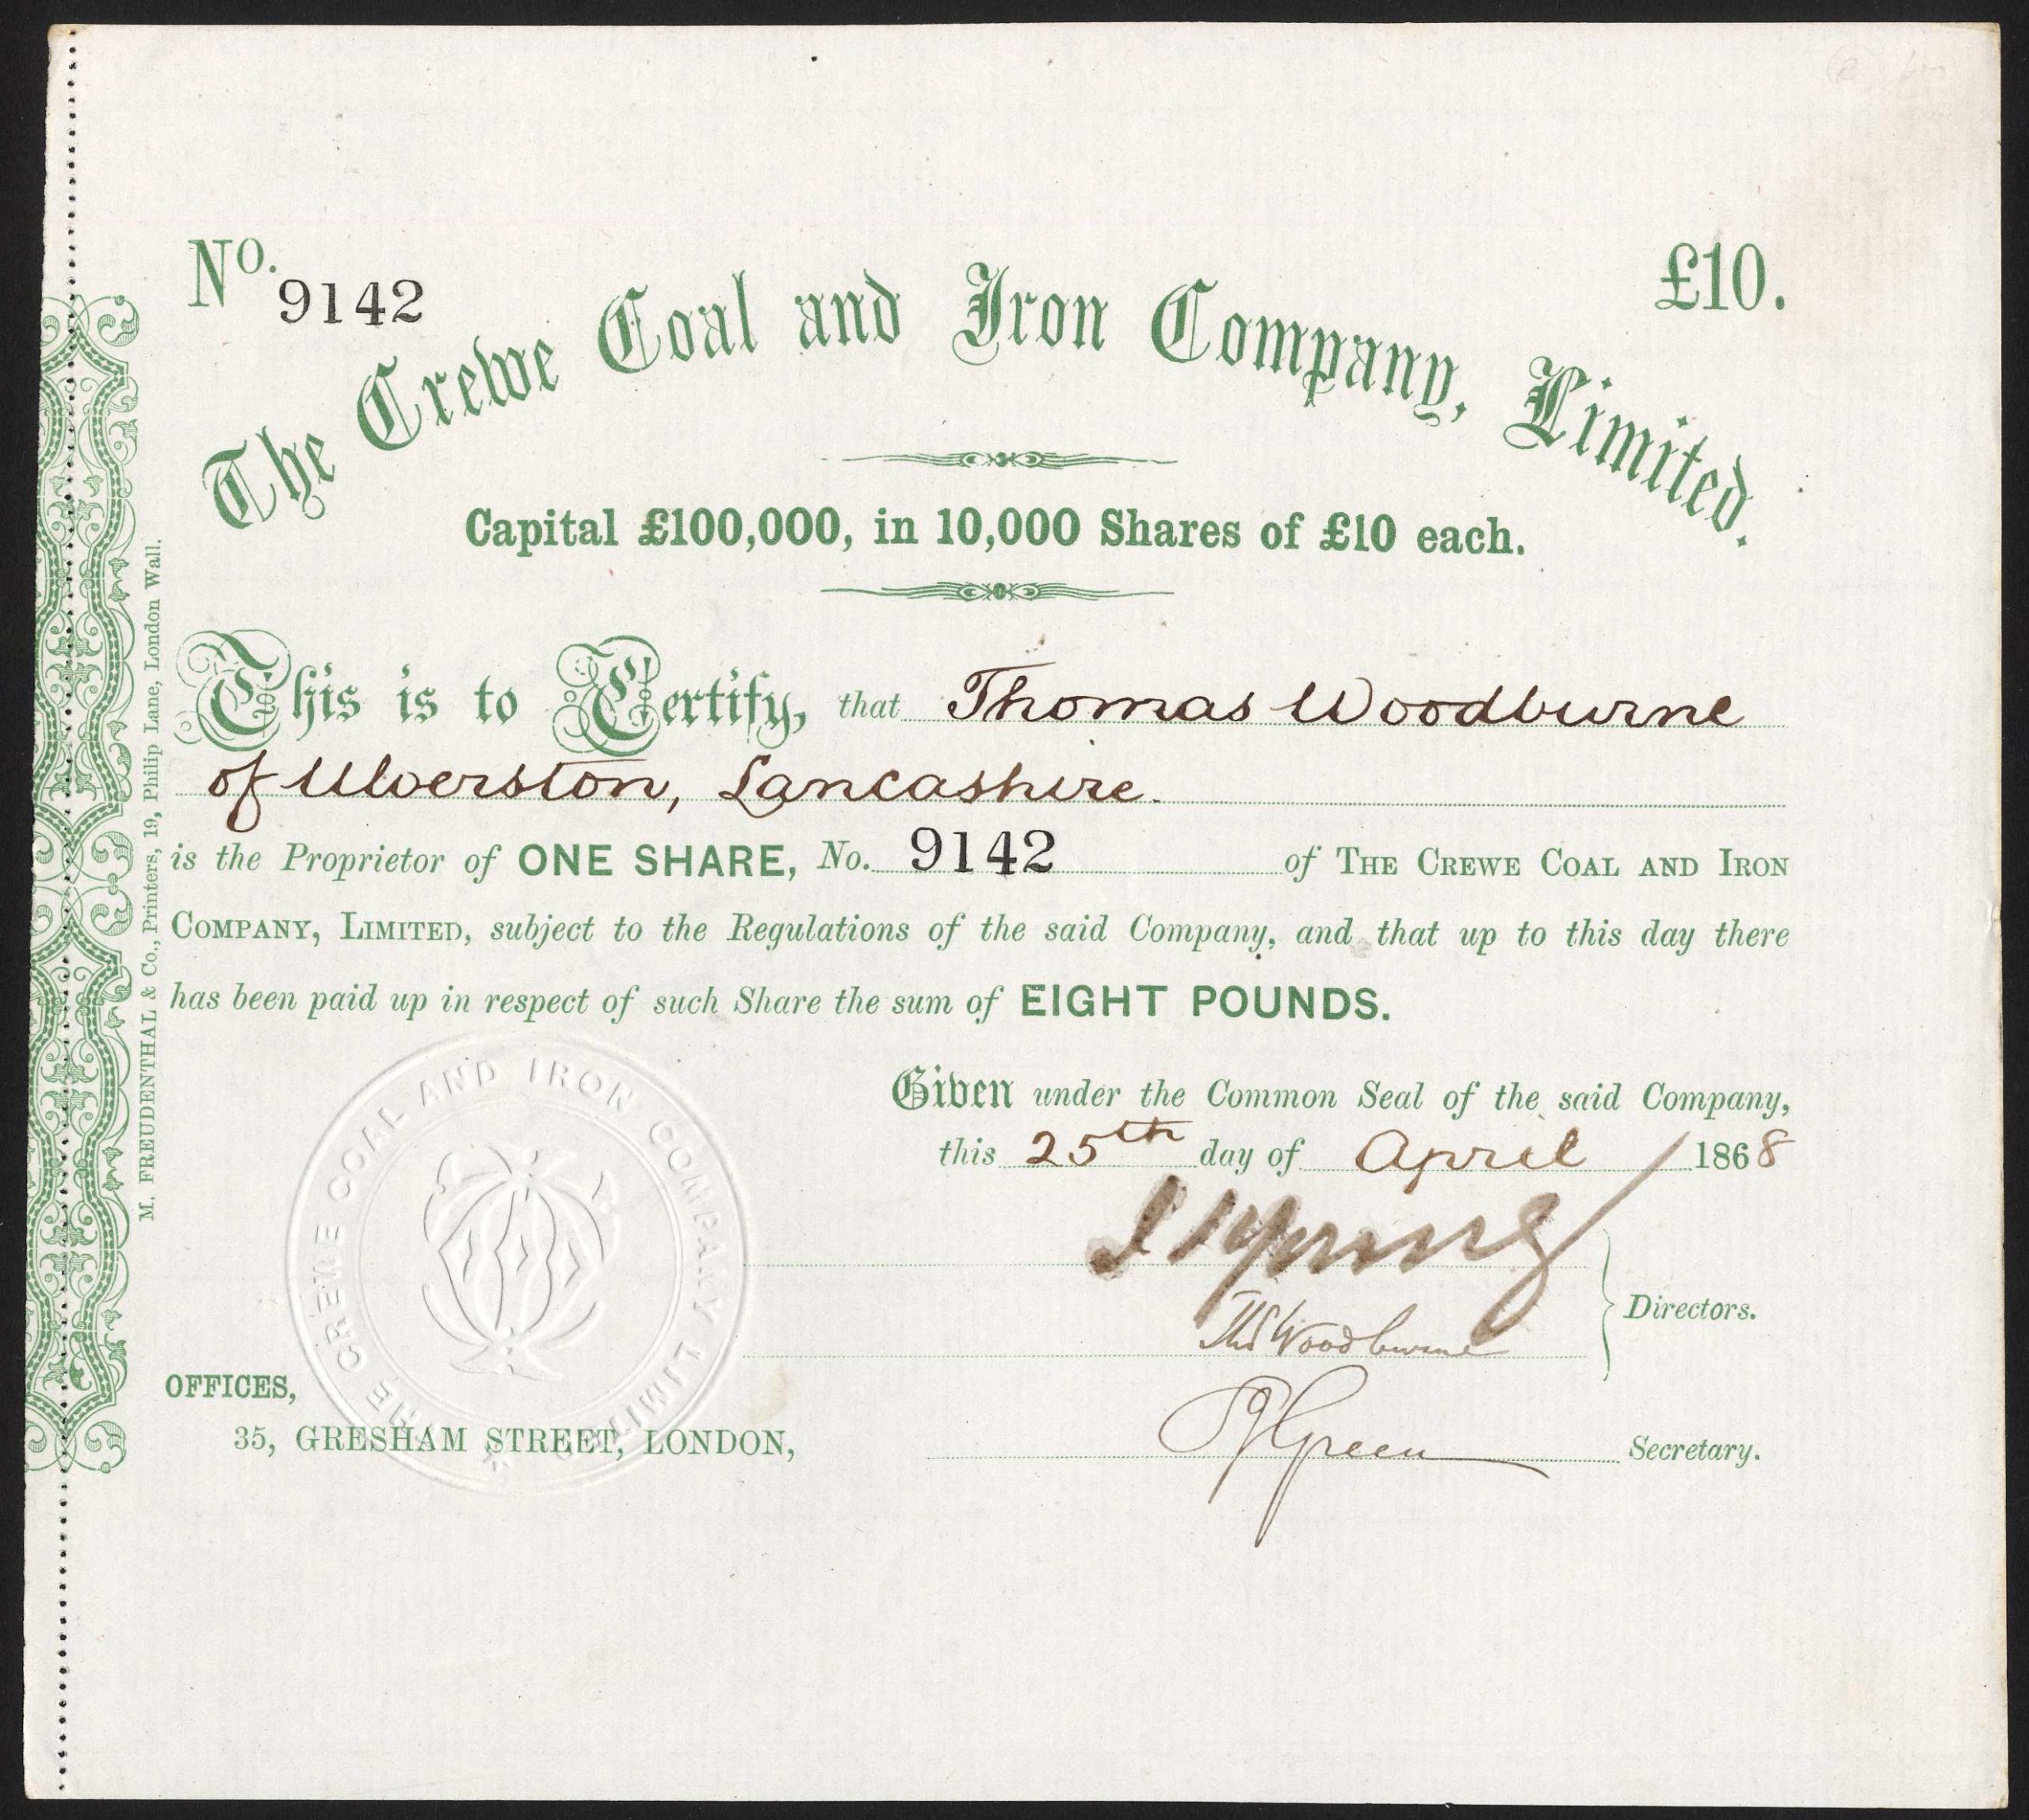 No. 9142
£10.
The Crewe Coal and Iron Company, Limited.
Capital £100,000, in 10,000 Shares of £10 each.
This is to Certify, that Thomas Woodburne
of Ulverston, Lancashire.
is the Proprietor of ONE SHARE, No. 9142 of THE CREWE COAL AND IRON
COMPANY, LIMITED, subject to the Regulations of the said Company, and that up to this day there
has been paid up in respect of such Share the sum of EIGHT POUNDS.
Given under the Common Seal of the said Company,
this 25th day of April 1868
Young
Thos Woodburne
Directors.
Green
Secretary.
OFFICES,
35, GRESHAM STREET, LONDON,
THE CREWE COAL AND IRON COMPANY LIMITED
M. FREUDENTHAL & Co., Printers, 19, Philip Lane, London Wall.